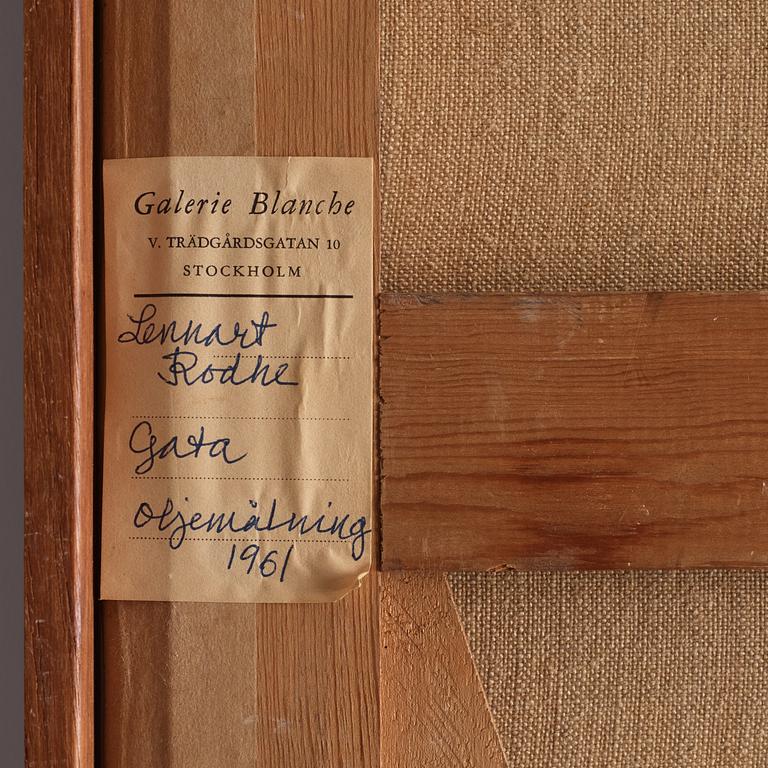 Galerie Blanche
V. TRÄDGÅRDSGATAN 10
STOCKHOLM
Lennart
Rodhe
Gata
Oljemålning
1961